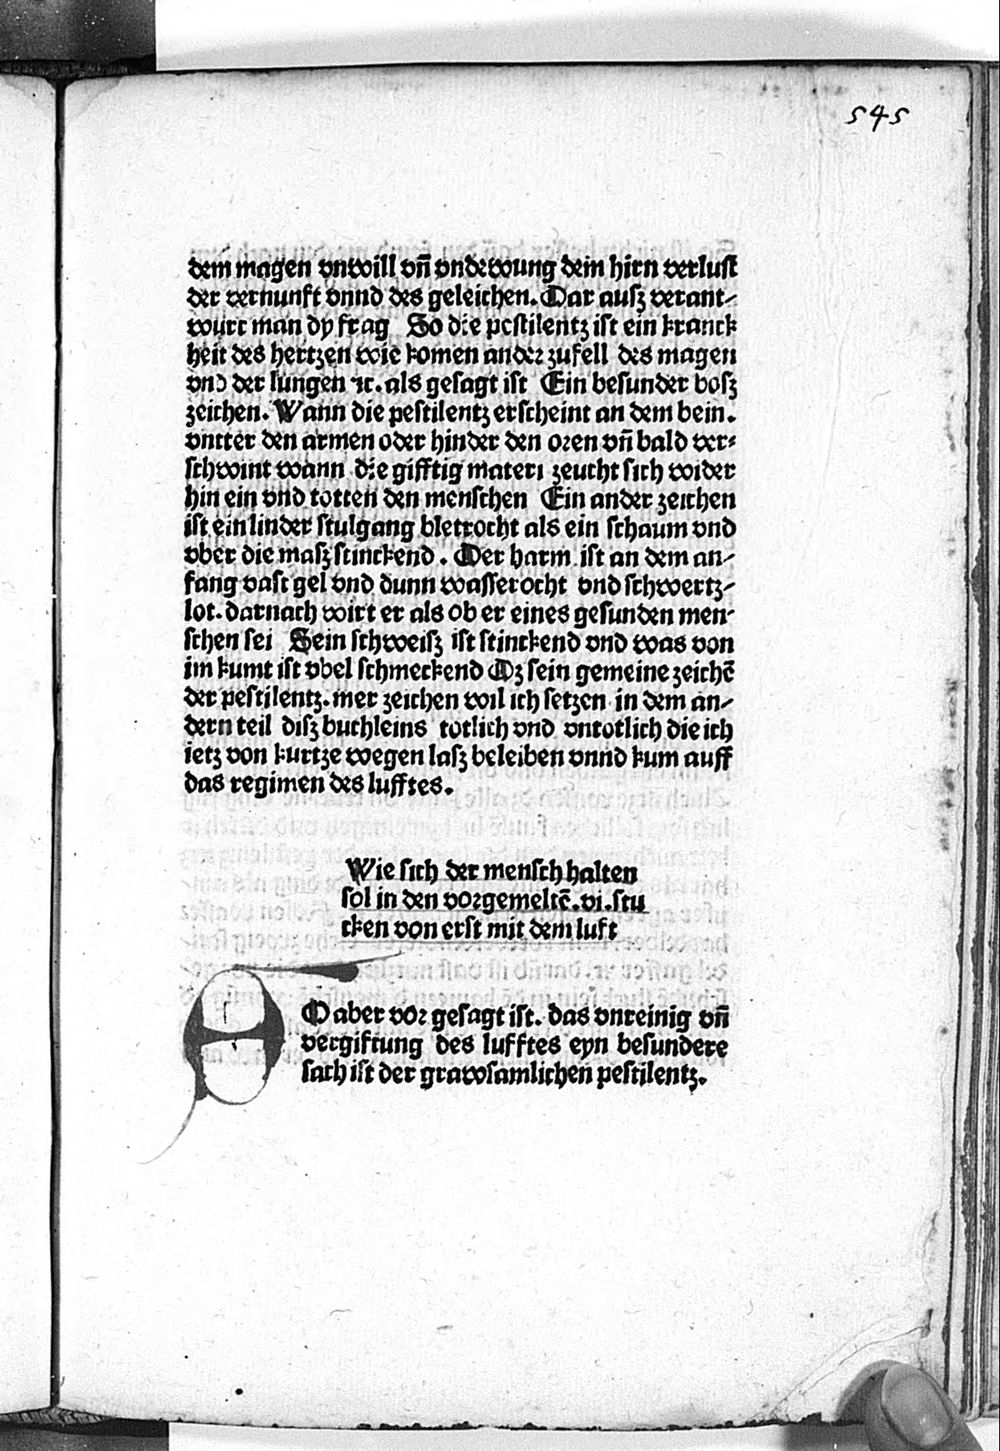 545
dem magen vnwill vn̄ vndewung dem hirn verlust
der vernunft vnnd des geleichen. Dar ausz verant⸗
wurt man dy frag So die pestilentz ist ein kranck
heit des hertzen wie komen ander zufell des magen
vnd der lungen ⁊c. als gesagt ist Ein besunder bosz
zeichen. Wann die pestilentz erscheint an dem bein.
vntter den armen oder hinder den oren vn̄ bald ver⸗
schwint wann die gifftig materi zeucht sich wider
hin ein vnd totten den menschen Ein ander zeichen
ist ein linder stulgang bletrocht als ein schaum vnd
vber die masz stinckend. Der harm ist an dem an⸗
fang vast gel vnd dunn wasserocht vnd schwertz⸗
lot. darnach wirt er als ob er eines gesunden men⸗
schen sei Sein schweisz ist stinckend vnd was von
im kumt ist vbel schmeckend Dz sein gemeine zeichē
der pestilentz. mer zeichen wil ich setzen in dem an⸗
dern teil disz buchleins totlich vnd vntotlich die ich
ietz von kurtze wegen lasz beleiben vnnd kum auff
das regimen des lufftes.
Wie sich der mensch halten
sol in den vorgemeltē. vi. stu
cken von erst mit dem luft
O aber vor gesagt ist. das vnreinig vn̄
vergiftung des lufftes eyn besundere
sach ist der grawsamlichen pestilentz.